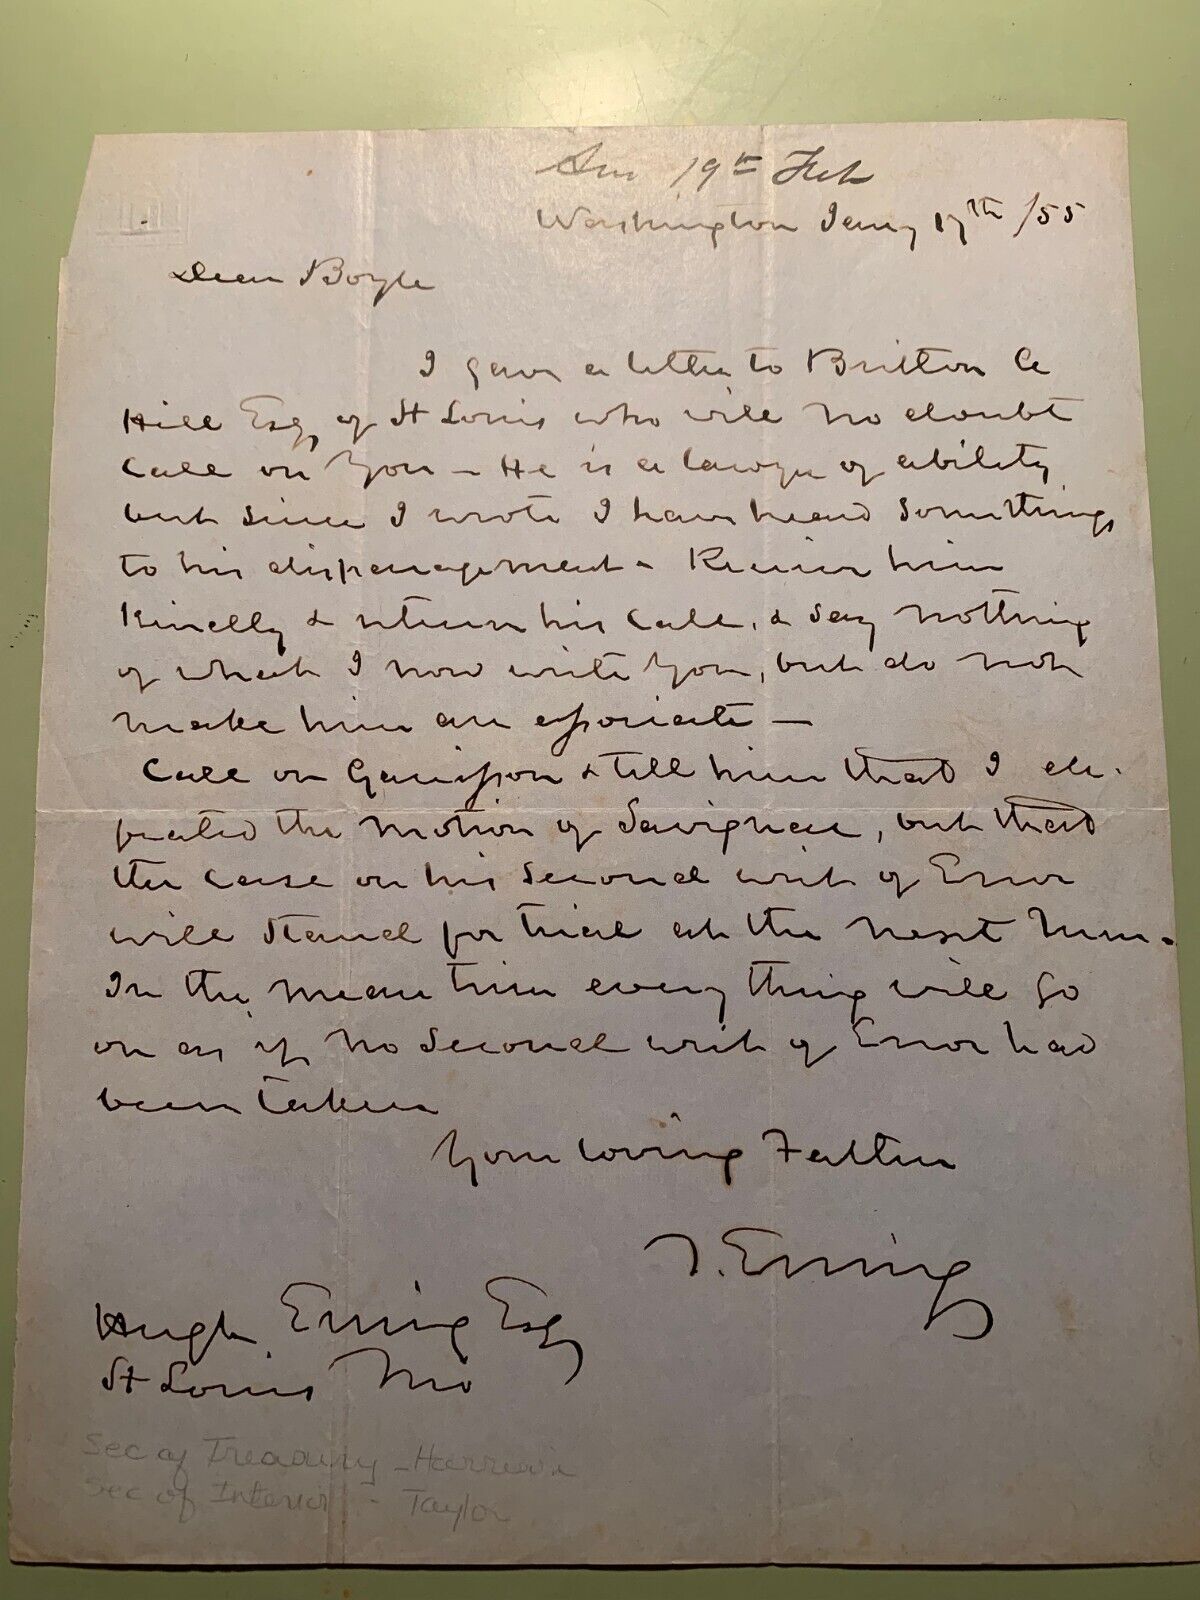 19th Feb
Washington Jany 17th /55
Dear Boyle
I gave a letter to Britton A
Hill Esq, of St Louis who will no doubt
Call on You – He is a lawyer of ability
but since I wrote I have heard something
to his disparagement – Receive him
Kindly & return his call, & say nothing
of what I now write You, but do not
make him an associate –
Call on Garrisson & tell him that I de-
feated the motion of Savignac, but that
the case on his second writ of Error
will stand for trial at the next
In the mean time every thing will go
on as if no second writ of Error had
been taken
Your loving Father
T. Ewing
Hugh Ewing Esq
St Louis Mo
Sec of Treasury – Harrison
Sec of Interior – Taylor